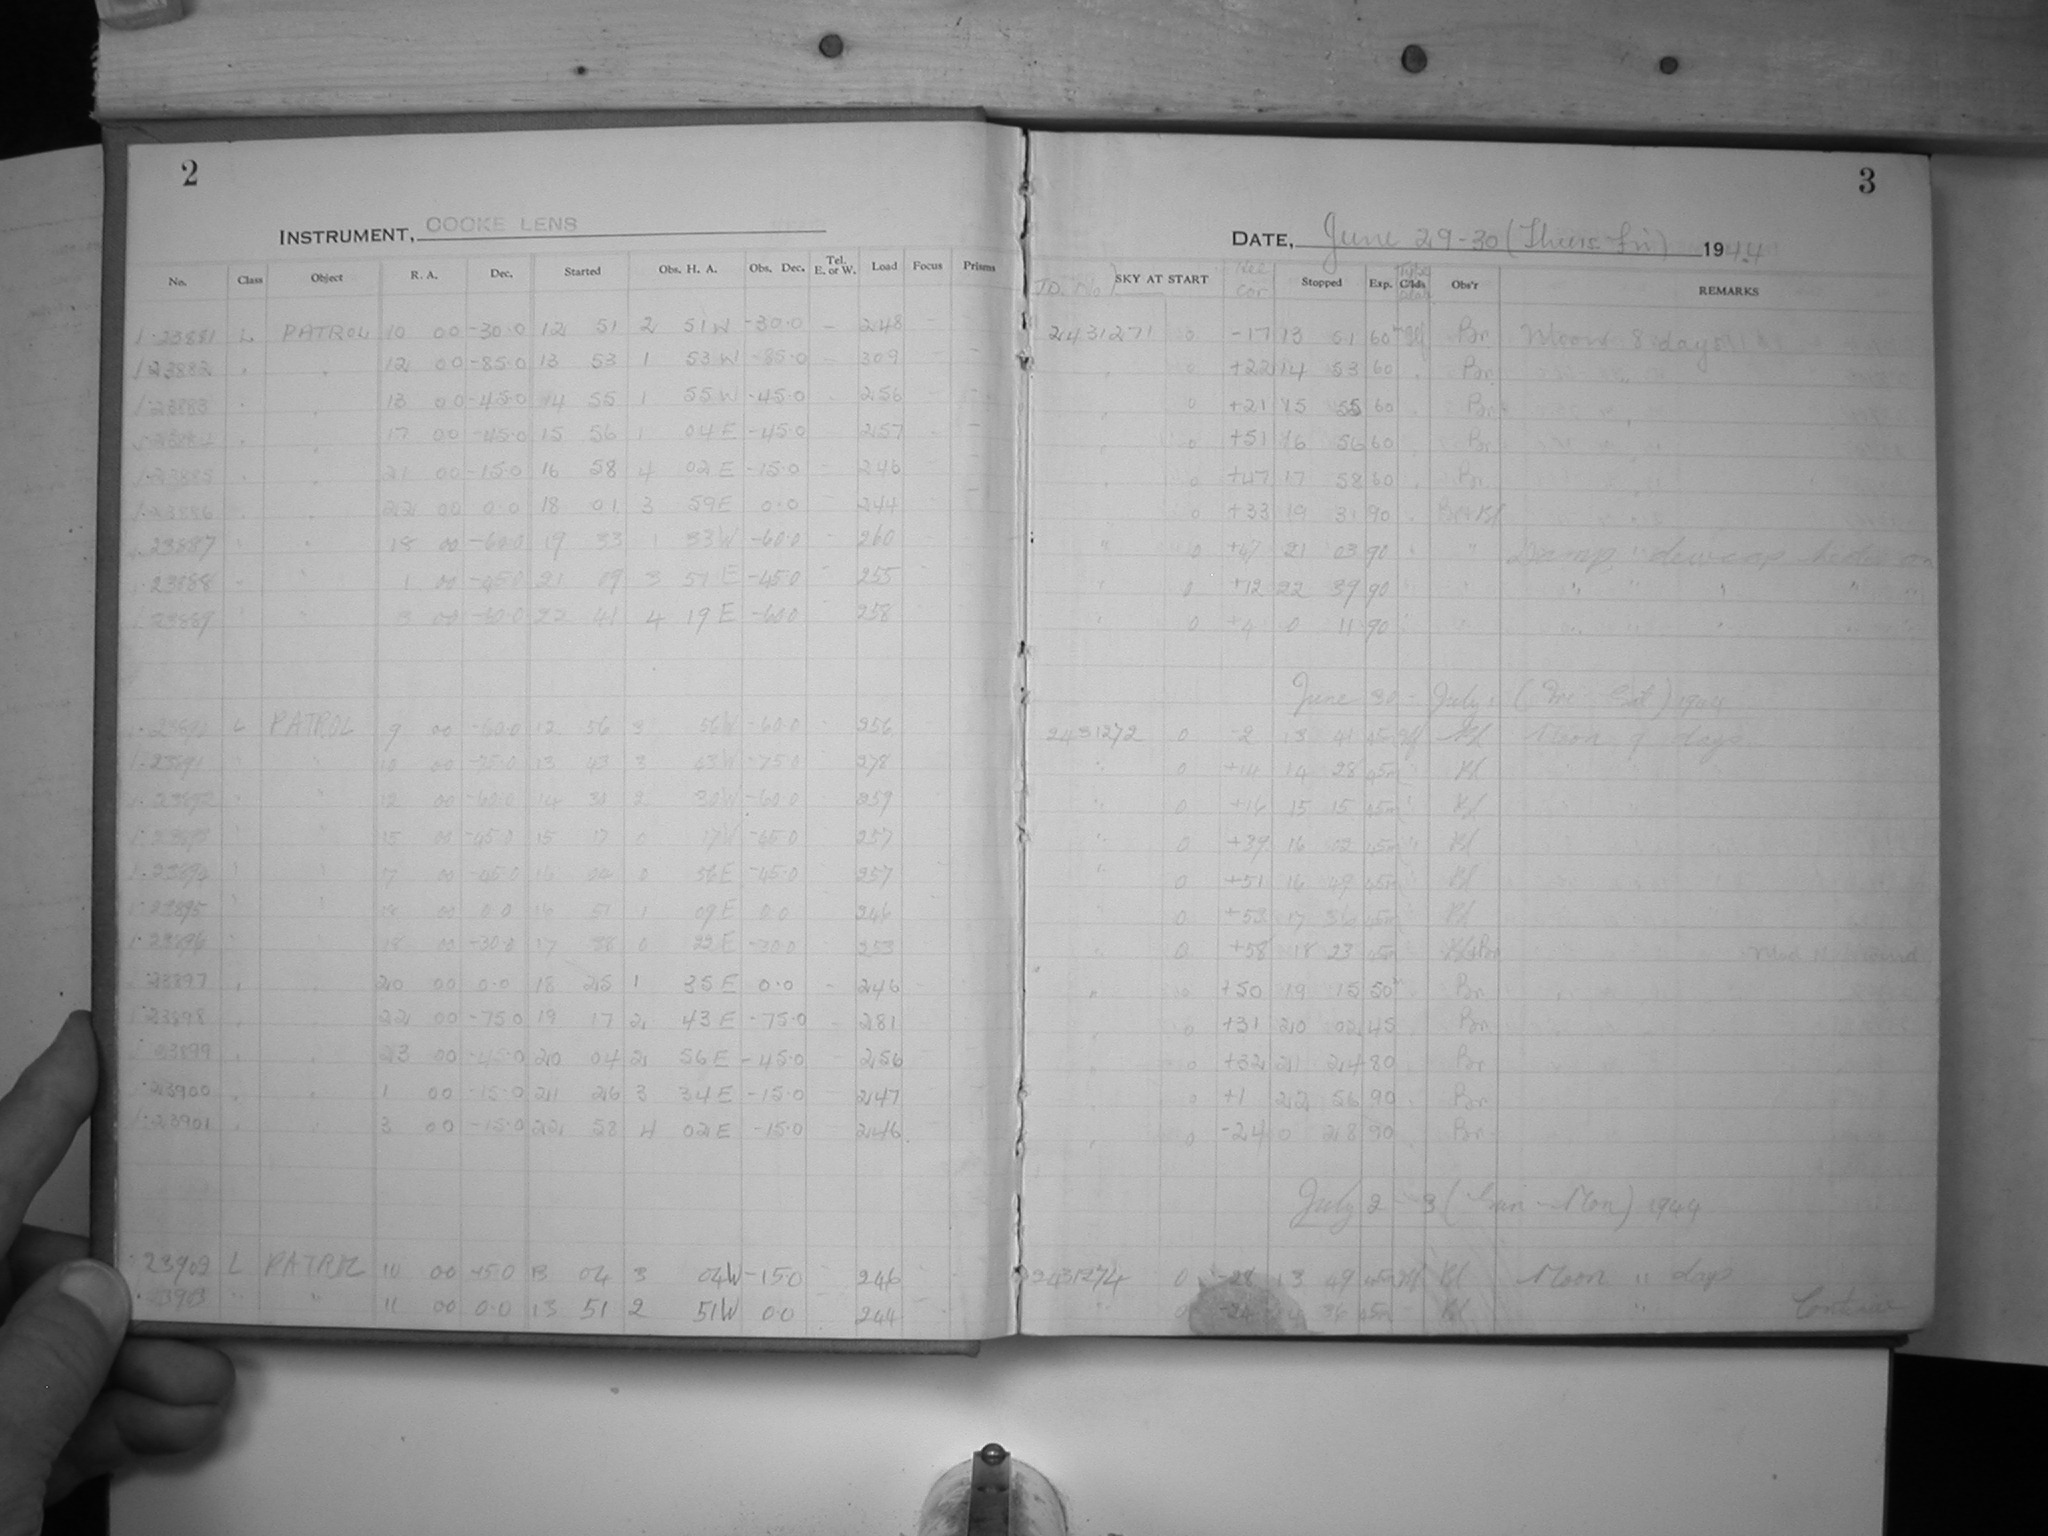 2
INSTRUMENT, COOKE LENS
No. Class Object R. A. Dec. Started Obs. H. A. Obs. Dec. Tel. E. or W. Load Focus Prisms
23881 L PATROL 10 00 -30.0 12 51 2 51 W -30.0 - 248
23882 12 00 -85.0 13 53 1 53 W -85.0 309
23883 13 00 -45.0 14 55 1 55 W -45.0 256
17 00 -45.0 15 56 1 04 E -45.0 257
23885 21 00 -15.0 16 58 4 02 E -15.0 246
23886 22 00 0.0 18 01 3 59 E 0.0 244
23887 18 00 -60.0 19 33 1 33 W -60.0 260
23888 1 00 -45.0 21 09 3 51 E -45.0 255
23889 3 00 -60.0 22 41 4 19 E -60.0 258
L PATROL 9 00 -60.0 12 56 3 56 W -60.0 256
23891 10 00 -75.0 13 43 3 43 W -75.0 278
23892 12 00 -60.0 14 30 2 30 W -60.0 259
23893 15 00 -45.0 15 17 0 17 W 257
23894 17 00 -45.0 16 04 0 56 E -45.0 257
23895 18 00 0.0 16 51 1 09 E 0.0 246
23896 18 00 -30.0 17 38 0 22 E -30.0 253
23897 20 00 0.0 18 25 1 35 E 0.0 - 246
23898 22 00 -75.0 19 17 2 43 E -75.0 281
23899 23 00 -45.0 20 04 2 56 E -45.0 256
23900 1 00 -15.0 21 26 3 34 E -15.0 247
23901 3 00 -15.0 22 58 4 02 E -15.0 246
23902 L PATROL 10 00 13 04 3 04 W -15.0 246
23903 " " 11 00 0.0 13 51 2 51 W 0.0 244
3
DATE, June 29-30 (Thurs-Fri) 1944
J.D. No. SKY AT START Stopped Exp. Obs'r REMARKS
2431271 0 -17 13 51 60 Br Moon 8 days
0 +22 14 53 60 Br
0 +21 15 55 60 Br
0 +51 16 56 60 Br
0 +47 17 58 60 Br
0 +33 19 31 90 Br+Bl
" 0 +47 21 03 90 " Damp, dewcap heater on
" 0 +12 22 39 90 "
" 0 +4 0 11 90 "
June 30 - July 1 (Fri-Sat) 1944
2431272 0 -2 13 41 45m Bl Moon 9 days
" 0 +14 14 28 45m Bl
" 0 +16 15 15 45m Bl
" 0 +39 16 02 45m Bl
" 0 +51 16 49 45m Bl
" 0 +53 17 36 45m Bl
" 0 +58 18 23 45m Bl+Br
" 0 +50 19 15 50 Br
0 +31 20 02 45 Br
0 +32 21 24 80 Br
0 +1 22 56 90 Br
0 -24 0 28 90 Br
July 2-3 (Sun-Mon) 1944
2431274 0 -28 13 49 45m Bl Moon 11 days
" 0 -24 14 36 45m Bl "
Continue